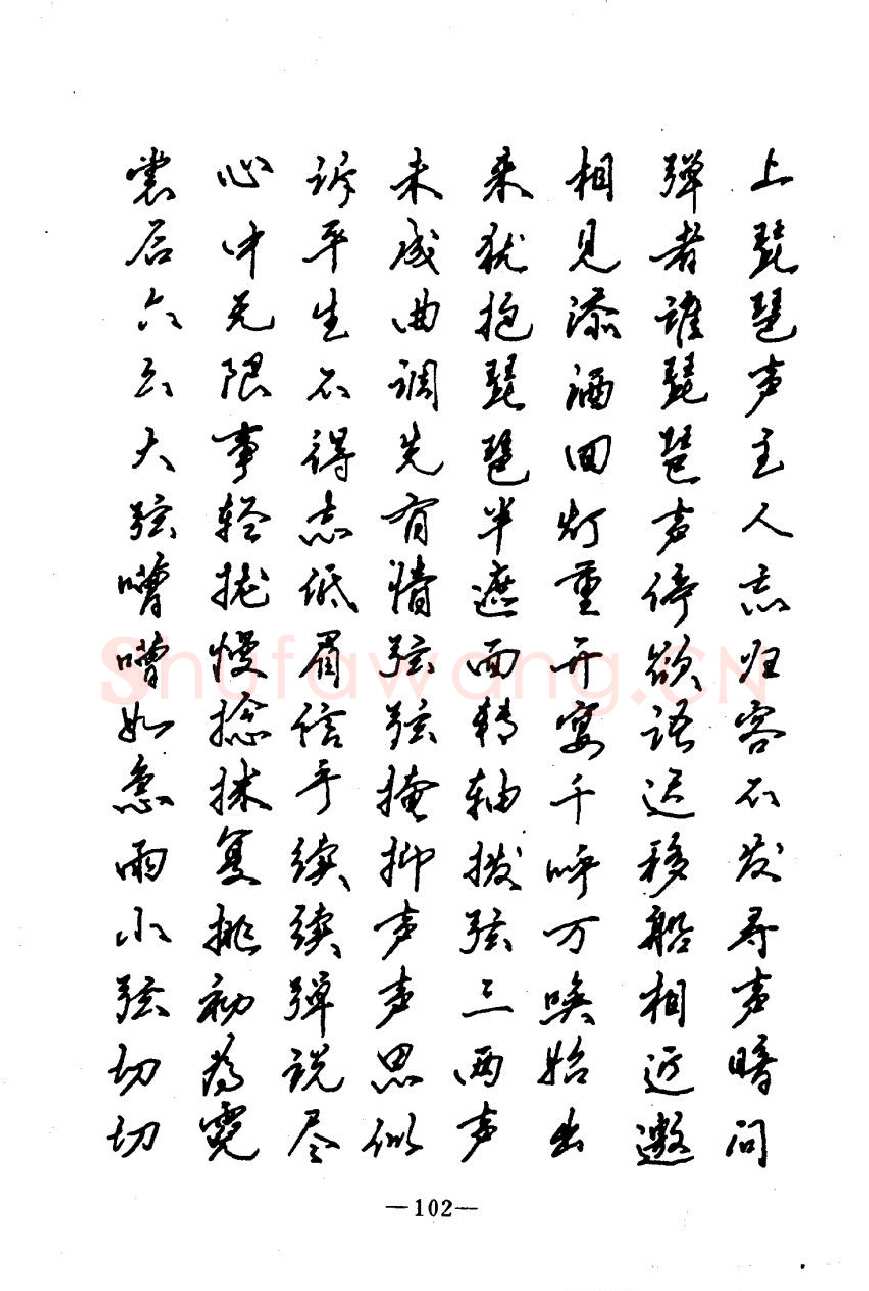 上琵琶声主人忘归客不发寻声暗问
弹者谁琵琶声停欲语迟移船相近邀
相见添酒回灯重开宴千呼万唤始出
来犹抱琵琶半遮面转轴拨弦三两声
未成曲调先有情弦弦掩抑声声思似
诉平生不得志低眉信手续续弹说尽
心中无限事轻拢慢捻抹复挑初为霓
裳后六幺大弦嘈嘈如急雨小弦切切
—102—
Shufawang.CN